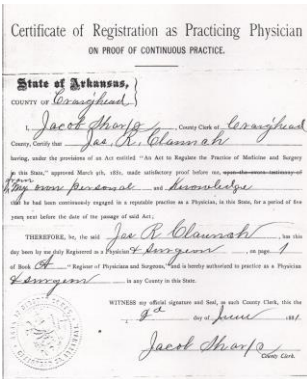 Certificate of Registration as Practicing Physician
ON PROOF OF CONTINUOUS PRACTICE.
State of Arkansas,
COUNTY OF Craighead
I, Jacob Sharp, County Clerk of Craighead
County, Certify that Jas. R. Claunch
having, under the provisions of an Act entitled "An Act to Regulate the Practice of Medicine and Surgery
in this State," approved March 9th, 1881, made satisfactory proof before me,
from My own personal and Knowledge
that he had been continuously engaged in a reputable practice as a Physician, in this State, for a period of five
years next before the date of the passage of said Act;
THEREFORE, he, the said Jas R. Claunch, has this
day been by me duly Registered as a Physician & Surgeon, on page 1
of Book A "Register of Physicians and Surgeons," and is hereby authorized to practice as a Physician
& Surgeon in any County in this State.
WITNESS my official signature and Seal, as such County Clerk, this the
day of June 1881
Jacob Sharp
County Clerk.